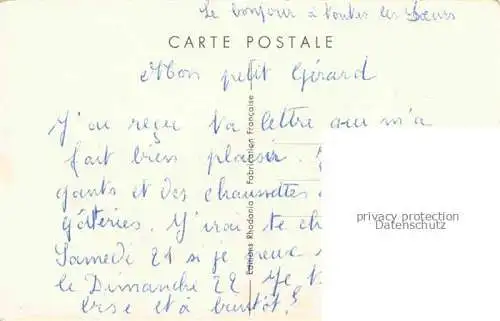 Le bonjour à toutes les Sœurs
CARTE POSTALE
Mon petit Gérard
J'ai reçu ta lettre qui m'a
fait bien plaisir.
gants et des chaussettes
gâteries. J'irai te ch
Samedi 21 si je peux
le Dimanche 22 Je t
brse et à bientôt!
Editions Rhodania Fabrication Française
privacy protection
Datenschutz